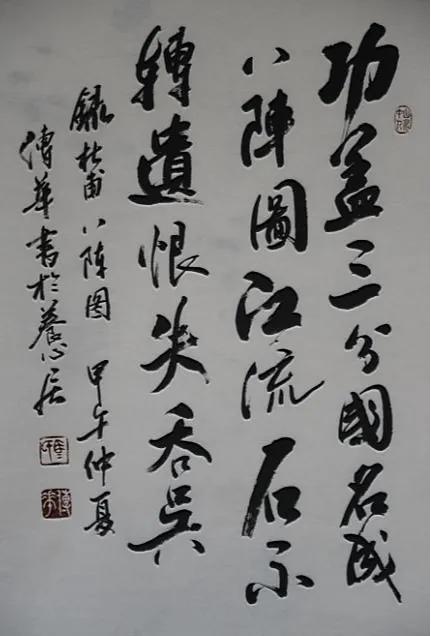 功盖三分國名成
八陣圖江流石不
轉遺恨失吞吴
録杜甫八陣图 甲午仲夏
傳華書於養心居